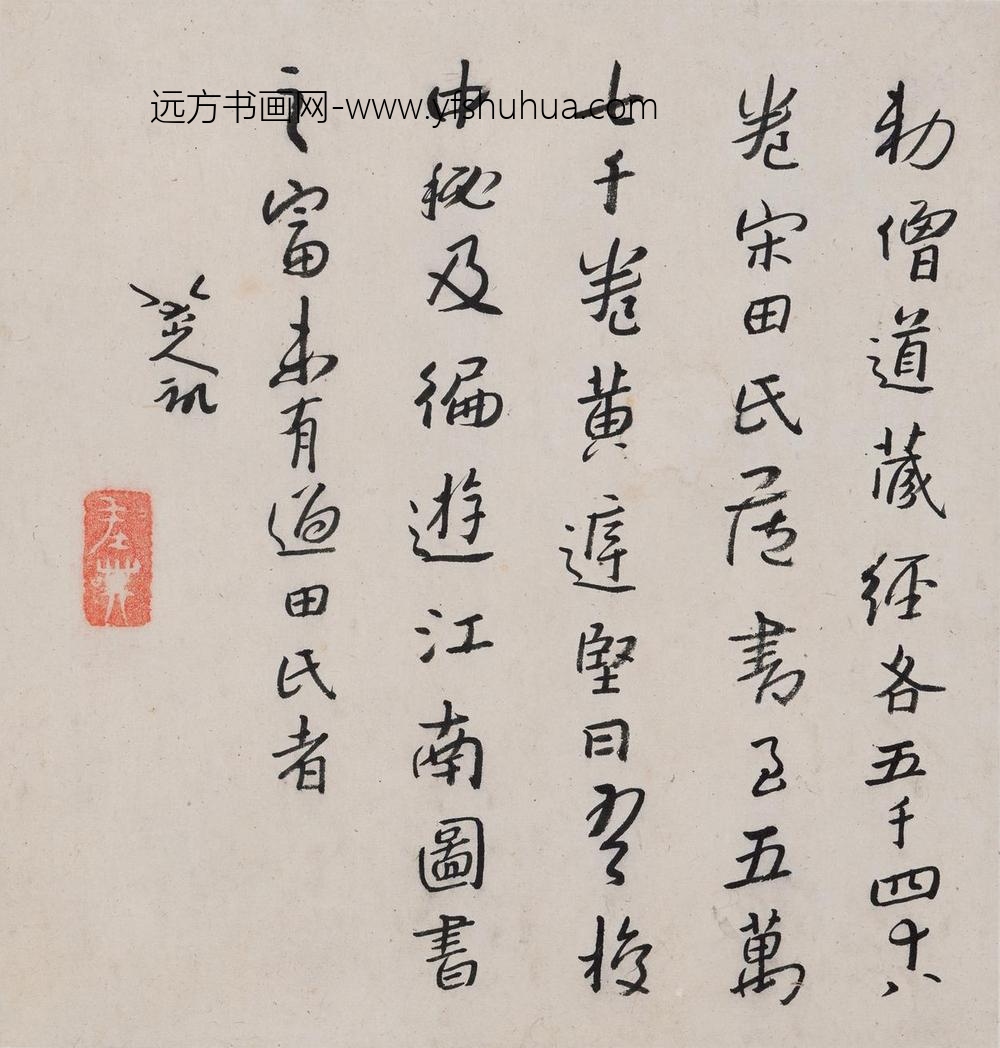 远方书画网-www.yfshuhua.com
勅僧道藏經各五千四十八
卷宋田氏藏書至五萬
七千卷黃庭堅曰吾校
中秘及徧遊江南圖書
之富未有過田氏者
八大山人記